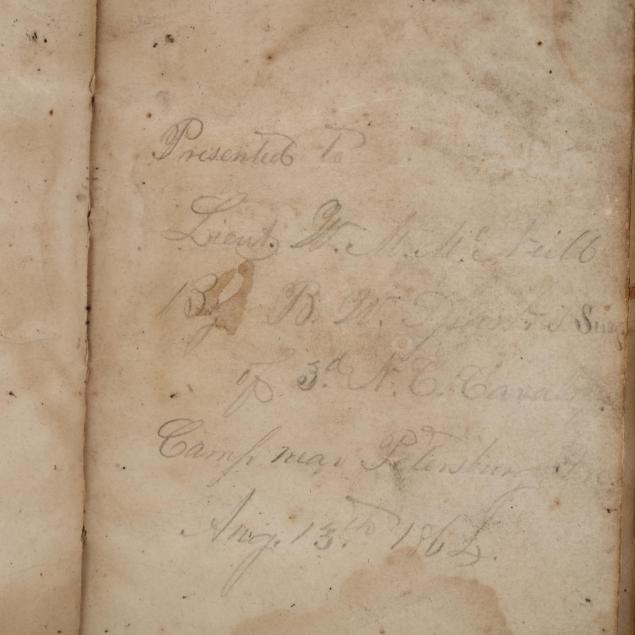 Presented To
Lieut. W. M. McNeill
By B. W. Surg
of 3d N. C. Cavalry
Camp near Petersburg
Aug. 13th 186